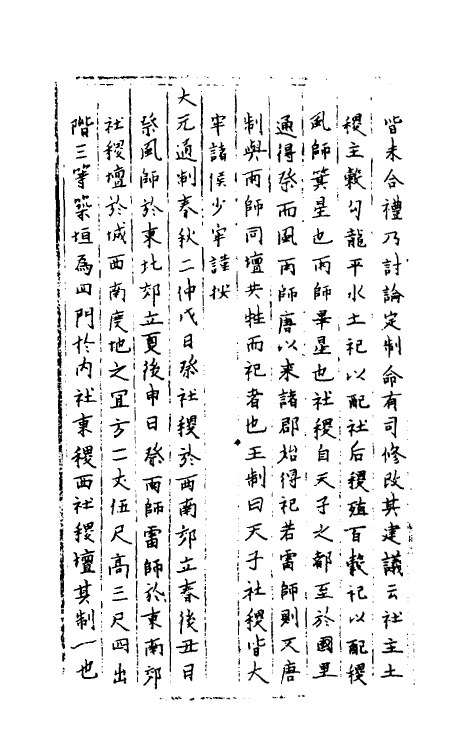 皆未合禮乃討論定制命有司修改其建議云社主土
稷主穀勾龍平水土祀以配社后稷殖百穀祀以配稷
風師箕星也雨師畢星也社稷自天子之都至於國里
通得祭而風雨師唐以来諸郡始得祀若雷師則又唐
制與雨師同壇共牲而祀者也王制曰天子社稷皆大
牢諸侯少牢謹按
大元通制春秋二仲戊日祭社稷於西南郊立春後丑日
祭風師於東北郊立夏後申日祭雨師雷師於東南郊
社稷壇於城西南度地之冝方一丈伍尺高三尺四出
階三等築垣為四門於内社東稷西社稷壇其制一也